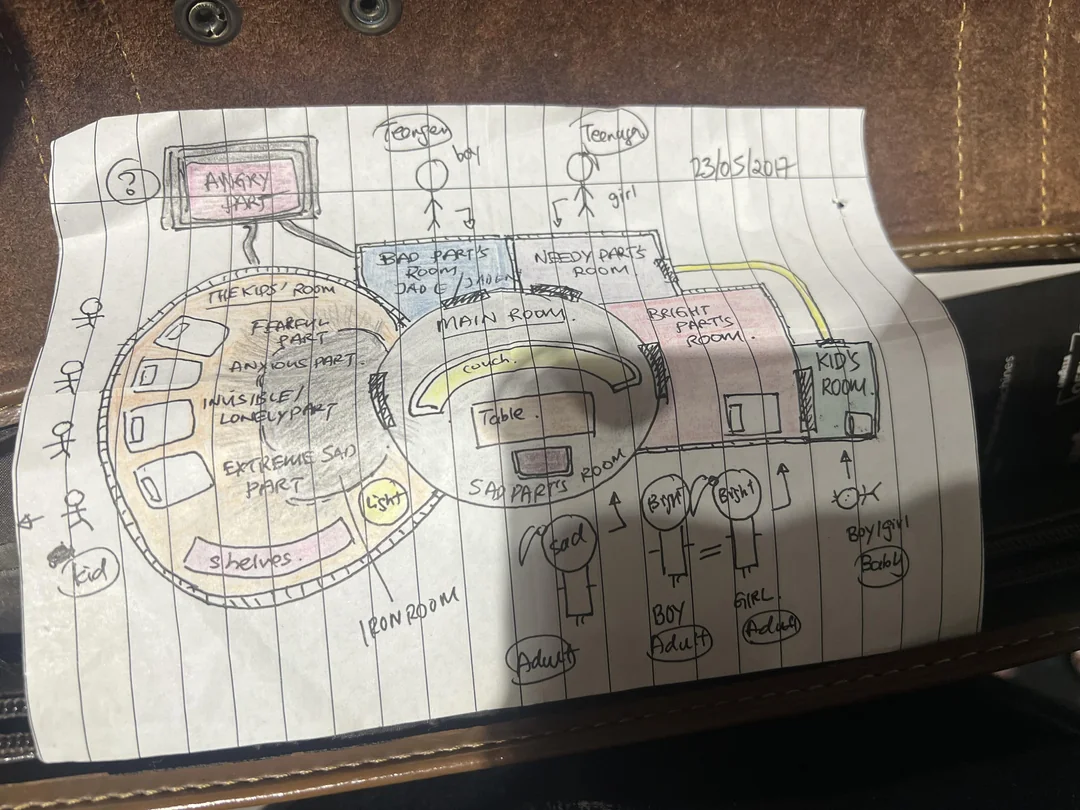 Teenager
boy
Teenager
girl
23/05/2017
?
ANGRY
PART
BAD PART'S
ROOM
NEEDY PART'S
ROOM.
THE KIDS' ROOM
FEARFUL
PART
ANXIOUS PART.
INVISIBLE/
LONELY PART
EXTREME SAD
PART
Light
shelves.
IRON ROOM
kid
MAIN ROOM.
couch.
Table.
SAD PART'S ROOM
BRIGHT
PART'S
ROOM.
KID'S
ROOM.
sad
Adult
Bright
BOY
Adult
=
Bright
GIRL.
Adult
Boy/girl
Baby